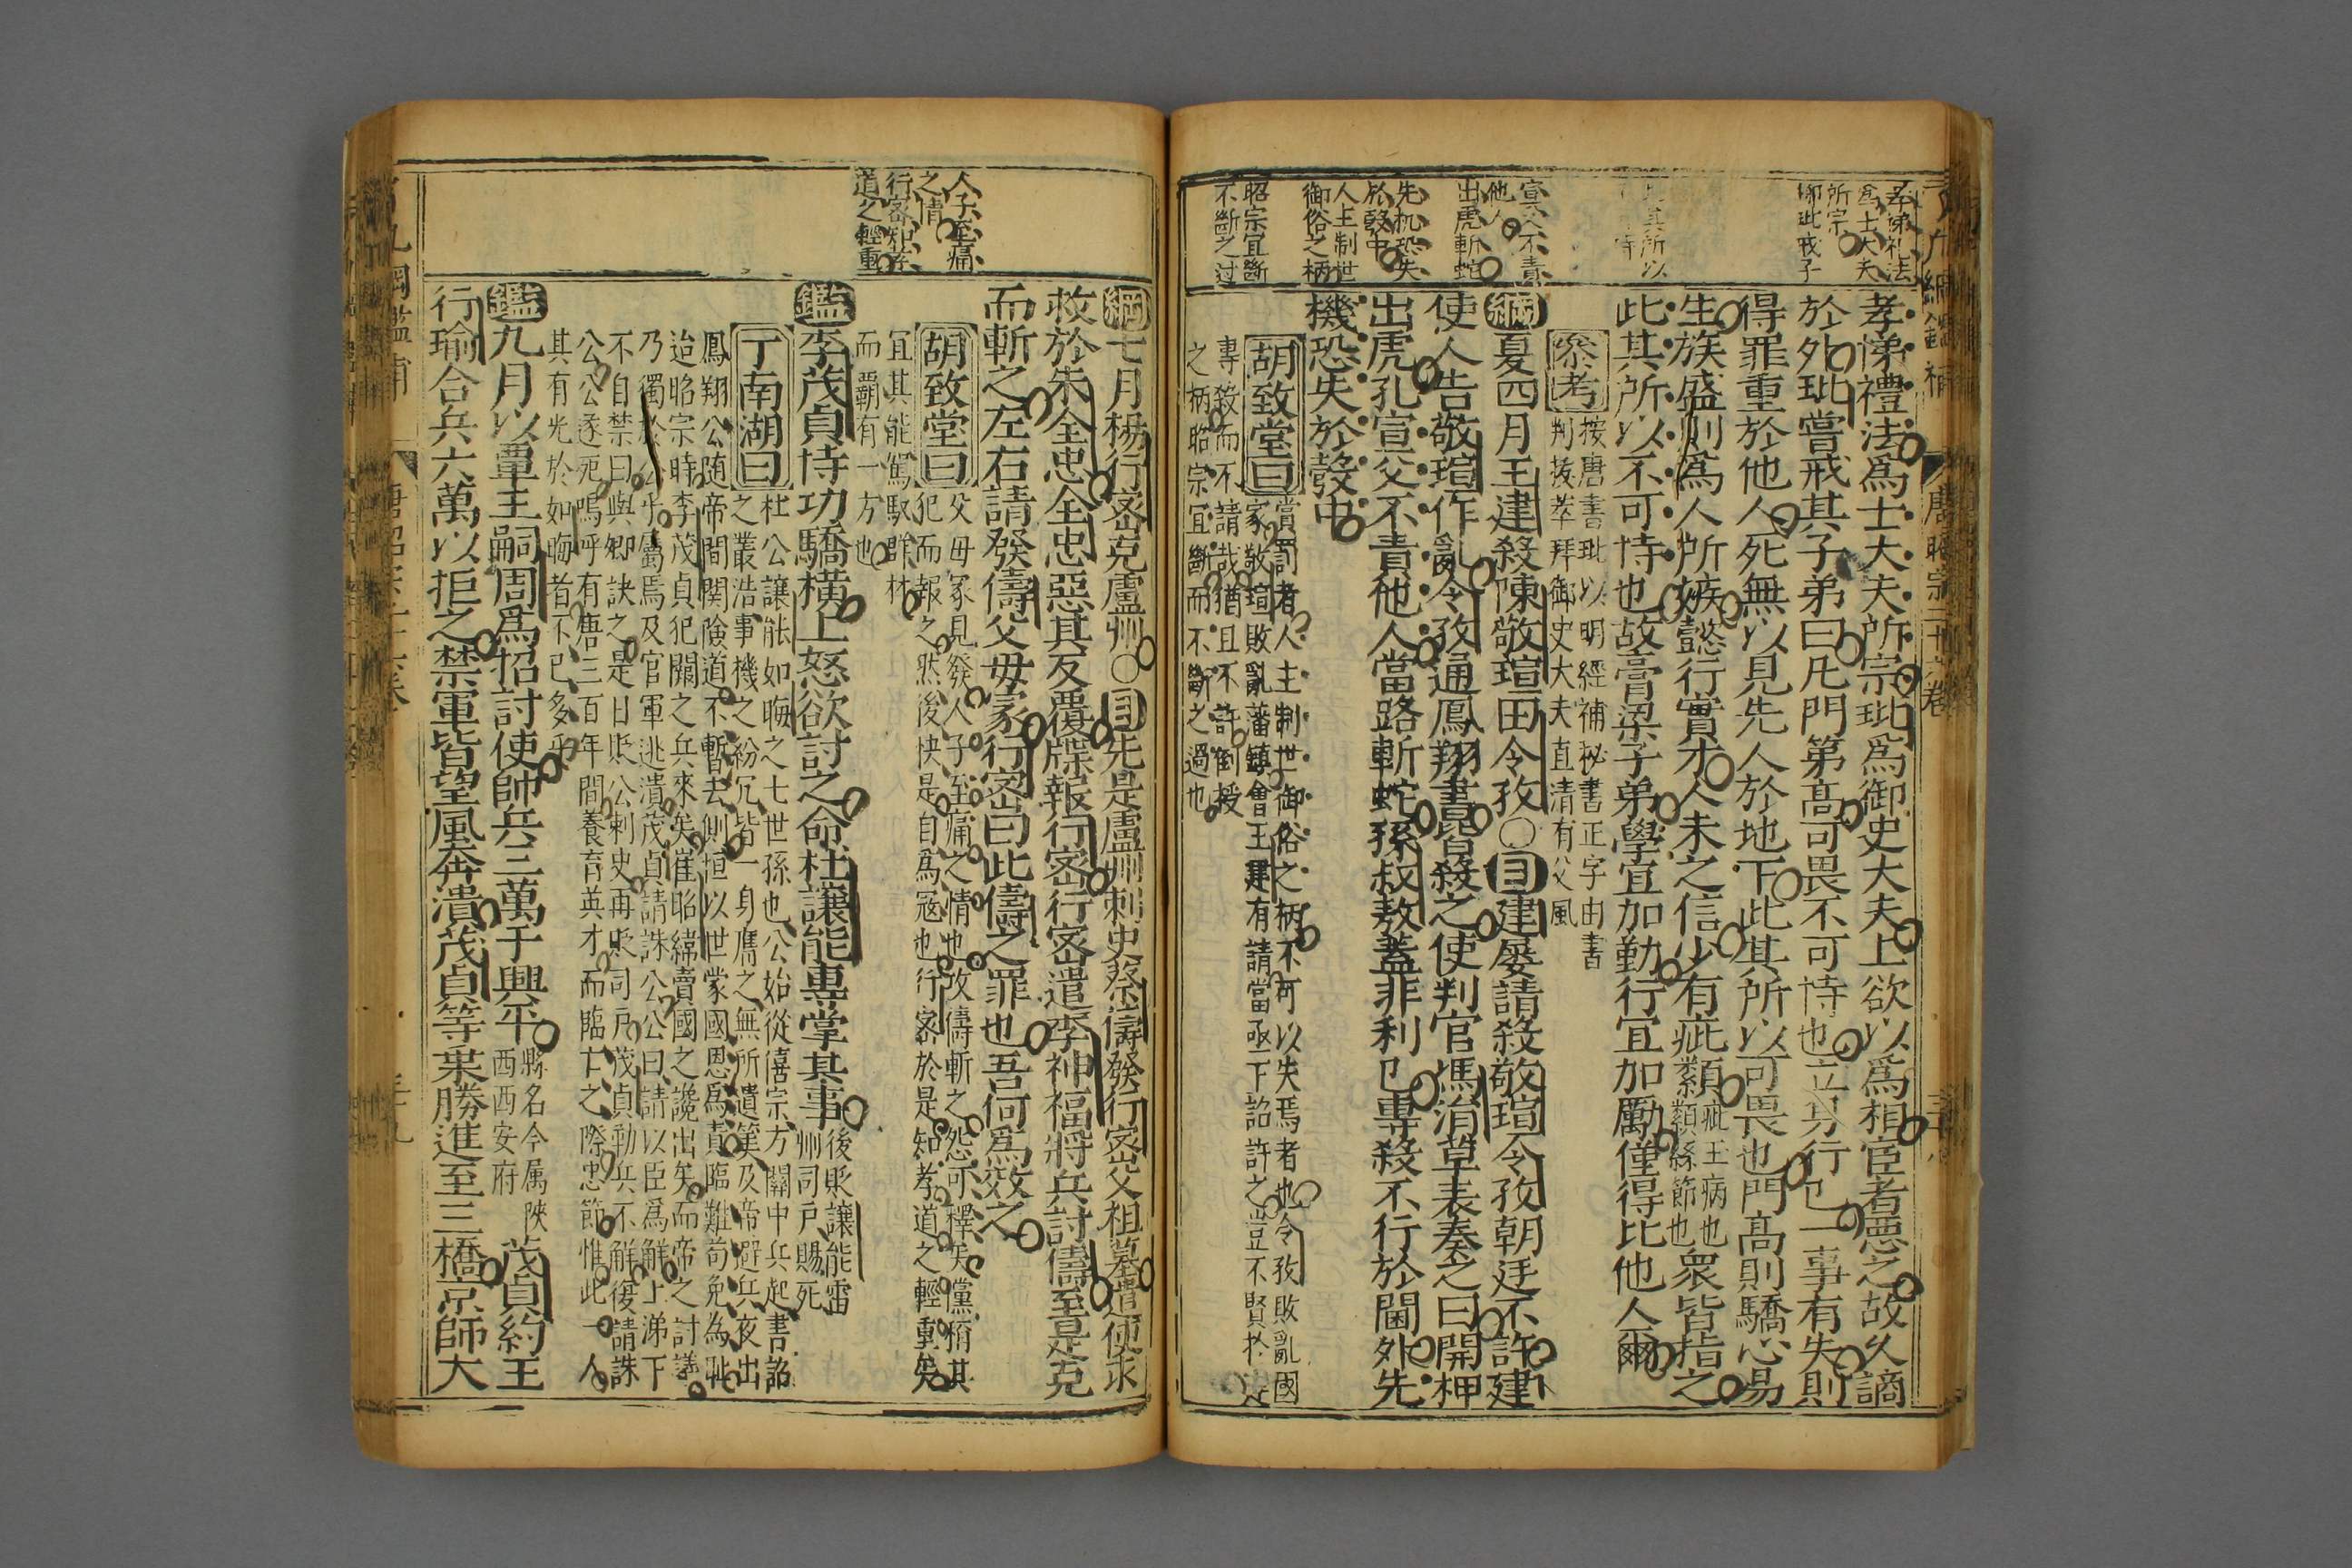 孝悌礼法
爲士大夫
所宗
柳玭戒子
是其所以
宣父不責
他人
出虎斬蛇
先机恐失
於彀中
人主制世
御俗之柄
昭宗宜斷
不斷之过
孝悌禮法爲士大夫所宗玭爲御史大夫上欲以爲相宦者惡之故久謫
於外玭嘗戒其子弟曰凡門第高可畏不可恃也立身行己一事有失則
得罪重於他人死無以見先人於地下此其所以可畏也門高則驕心易
生族盛則爲人所嫉懿行實才人未之信少有疵纇疵王病也纇絲節也衆皆指之
此其所以不可恃也故膏粱子弟學宜加勤行宜加勵僅得比他人爾
叅考 按唐書玭以明經補秘書正字由書
判拔萃拜御史大夫直清有父風
綱夏四月王建殺陳敬瑄田令孜○目建屡請殺敬瑄令孜朝廷不許建
使人告敬瑄作亂令孜通鳳翔書皆殺之使判官馮涓草表奏之曰開柙
出虎孔宣父不責他人當路斬蛇孫叔敖蓋非利己專殺不行於閫外先
機恐失於彀中
胡致堂曰 賞罰者人主制世御俗之柄不可以失焉者也令孜敗亂國
家敬瑄敗亂藩鎮會王建有請當亟下詔許之豈不賢於
專殺而不請哉猶且不許倒授
之柄昭宗宜斷而不斷之過也
人子至痛
之情
行密知孝
道之輕重
綱七月楊行密克盧州○目先是盧州刺史蔡儔發行密父祖墓遣使求
救於朱全忠全忠惡其反覆牒報行密行密遣李神福將兵討儔至是克
而斬之左右請發儔父毋冢行密曰此儔之罪也吾何爲效之
胡致堂曰 父毋冢見發人子至痛之情也攻儔斬之怨可釋矣黨稍其
犯而報之然後快是自爲寇也行密於是知孝道之輕重矣
宜其能駕馭群材
而覇有一方也
鑑李茂貞恃功驕横上怒欲討之命杜讓能專掌其事後貶讓能雷
州司戸賜死
丁南湖曰 杜公讓能如晦之七世孫也公始從僖宗方關中兵起書詔
之叢浩事機之紛冗皆一身膺之無所遺筭及帝避兵夜出
鳳翔公随帝間関険道不暫去則恒以世蒙國恩爲責臨難苟免為恥
迨昭宗時李茂貞犯闕之兵來矣崔昭緯賣國之讒出矣而帝之討議
乃獨於公乎屬焉及官軍逃潰茂貞請誅公公曰請以臣爲解上涕下
不自禁曰與卿訣之是日貶公刺史再貶司戸茂貞勒兵不解復請誅
公公遂死嗚呼有唐三百年間養育英才而臨亡之際忠節惟此一人
其有光於如晦者不已多乎
鑑九月以覃王嗣周爲招討使帥兵三萬于興平縣名今属陝西西安府茂貞約王
行瑜合兵六萬以拒之禁軍皆望風奔潰茂貞等乘勝進至三橋京師大